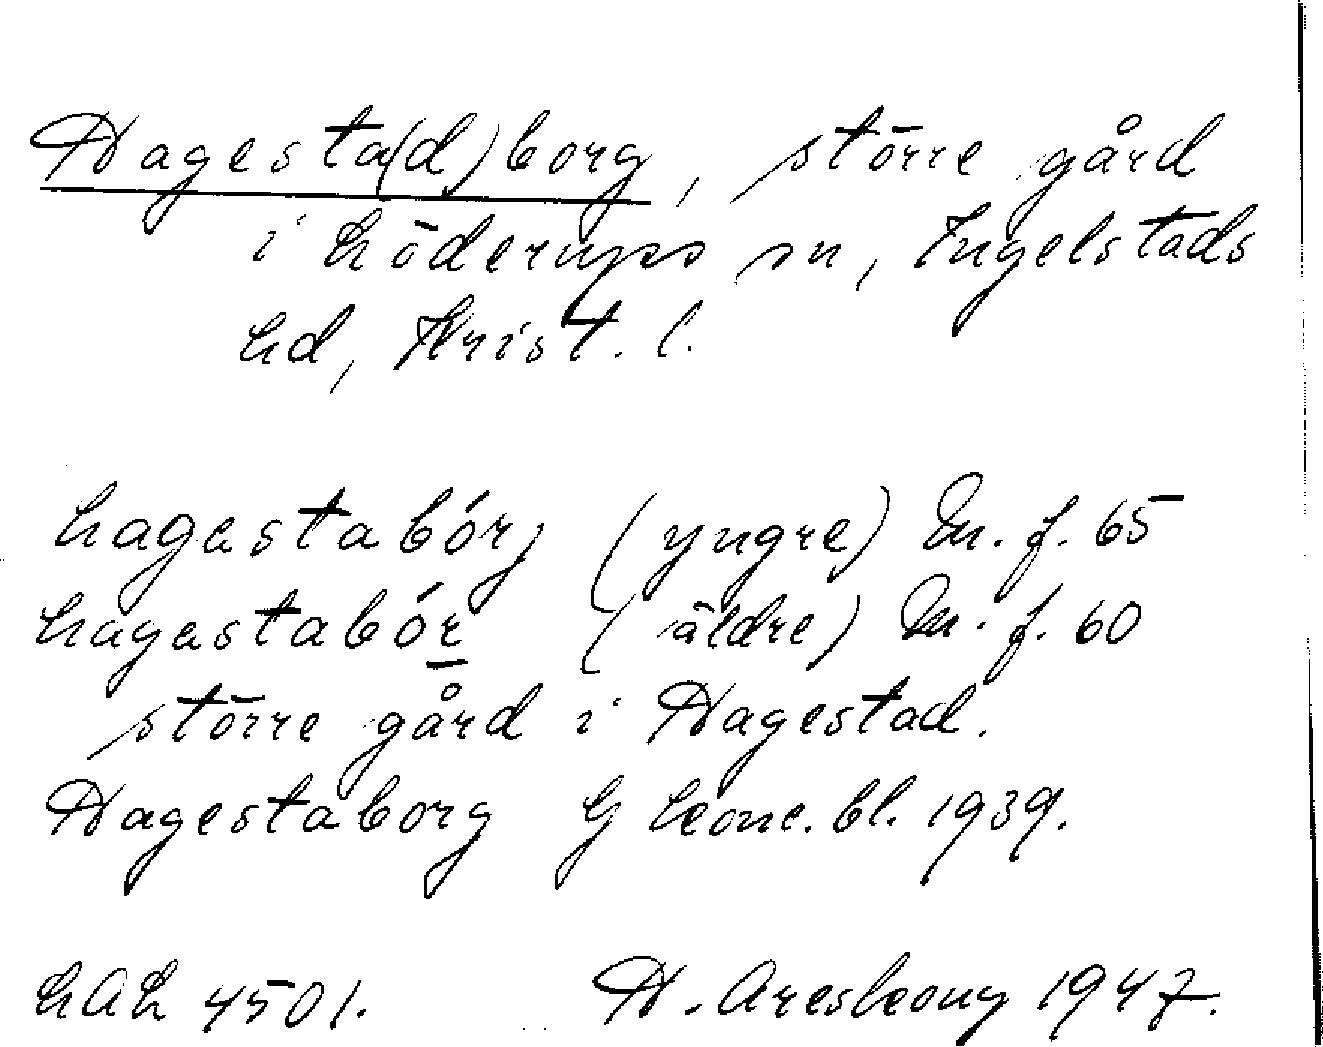 Hagesta(d)borg, större gård
i Löderups sn, Ingelstads
hd, Krist. l.
hagestabórj (yngre) M. f. 65
hagestabór (äldre) M. f. 60
större gård i Hagestad.
Hagestaborg G kone. bl. 1939.
LAL 4501. H. Areskoug 1947.